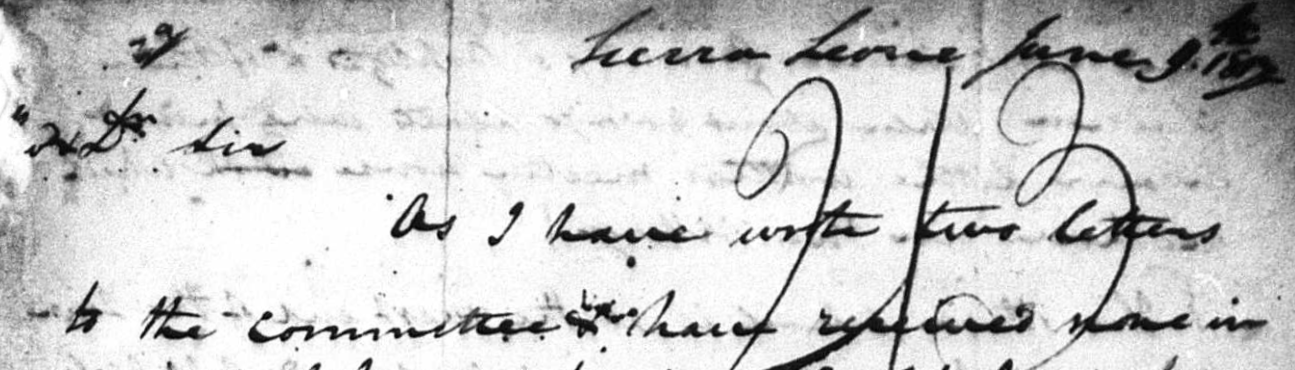 Sierra Leone June 9th 1813
Dr Sir
As I have wrote two letters
to the committee & have received none in